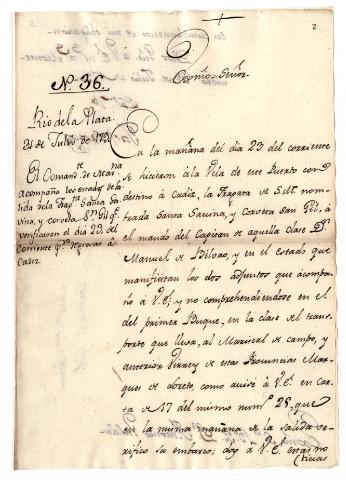 2
Exc.mo Señor.
N.o 36.
Rio de la Plata.
31 de Julio de
El Comand.te de Marina
acompaña los estados de sa-
lida de la Frag.ta Santa Sa-
vina, y Corveta S.n Gil q.e
verificaron el dia 23 del
corriente p.a regresar á
Cadiz.
En la mañana del dia 23 del corriente
se hicieron á la Vela de este Puerto con
destino á Cadiz, la Fragata de S.M. nom-
brada Santa Savina, y Corveta San Gil, á
el mando del Capitan de aquella clase D.n
Manuel de Bilbao, y en el estado que
manifiestan los dos adjuntos que acompa-
ño á V.E. y no comprehendiendose en el
del primer Buque, en la clase de trans-
porte que lleva, al Mariscal de campo, y
anterior Virrey de estas Provincias Mar-
ques de Loreto, como avisé á V.E. en Car-
ta de 17 del mismo num.o 28, que
en la misma mañana de la salida ve-
rifico su embarco; doy á V.E. esta no-
ticias